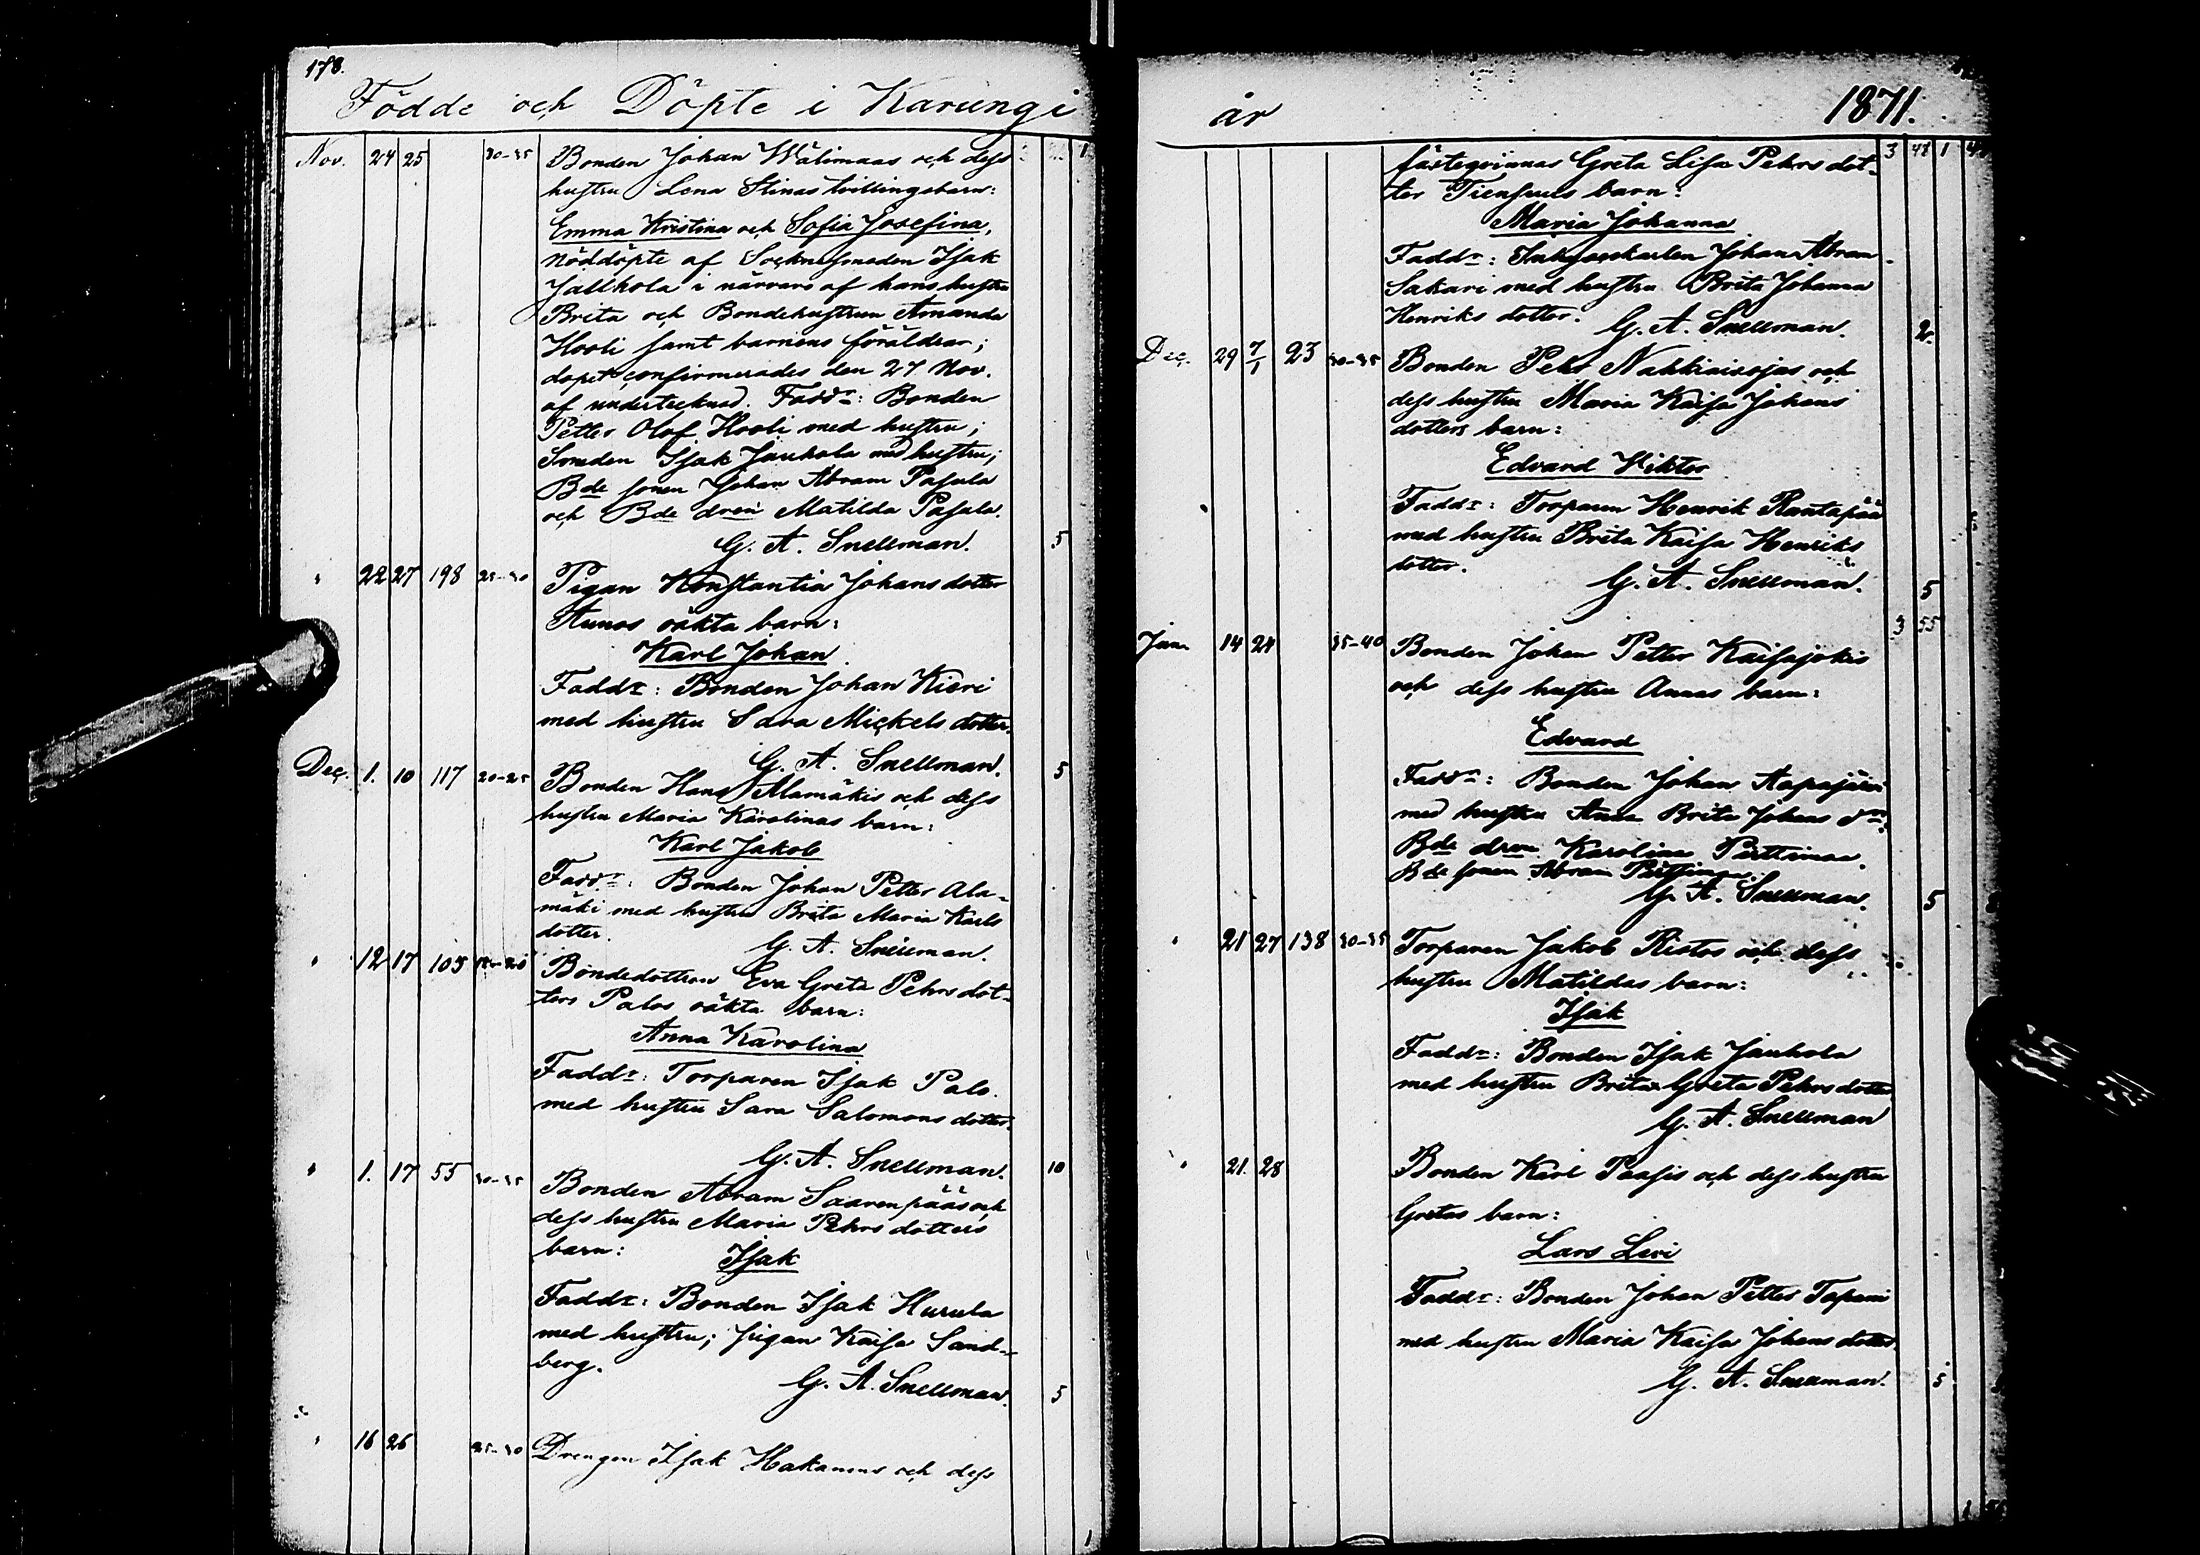 178.
Födde och Döpte i Karungi
Nov. 24 25 30-35 Bonden Johan Wälimaas och dess
hustru Lena Stinas tvillingsbarn:
Emma Kristina och Sofia Josefina,
nöddöpte af Sockensmeden Isak
i närvaro af hans hustru
Brita och Bondehustrun Amanda
Hooli samt barnens föräldrar;
dopet confirmerades den 27 Nov.
af undertecknad. Faddr: Bonden
Petter Olof Hooli med hustru;
Smeden Isak Jauhola med hustru;
Bde sonen Johan Abram Pasula
och Bde dren Matilda Pasula.
G. A. Snellman. 5
" 22 27 198 25-30 Pigan Konstantia Johansdotter
Hunos oäkta barn:
Karl Johan
Faddr: Bonden Johan Kieri
med hustru Sara Mickelsdotter.
G. A. Snellman. 5
Dec. 1. 10 117 20-25 Bonden Hans Alamäkis och dess
hustru Maria Karolinas barn:
Karl Jakob
Faddr: Bonden Johan Petter Ala-
mäki med hustru Brita Maria Karls
dotter. G. A. Snellman.
" 12 17 105 Bondedottren Eva Greta Pehrsdot-
ters Palos oäkta barn:
Anna Karolina
Faddr: Torparen Isak Palo
med hustru Sara Salomonsdotter.
G. A. Snellman. 10
" 1. 17 55 30-35 Bonden Abram Saarenpääs och
dess hustru Maria Pehrsdotters
barn: Isak
Faddr: Bonden Isak Hurula
med hustru; pigan Kaisa Sand-
berg.
G. A. Snellman. 5
" 16 26 25-30 Drengen Isak Hakanens och dess
år 1871.
fästeqvinnas Greta Lisa Pehrsdot- 3 48 1
ter Tiensuus barn:
Maria Johanna
Faddr: Johan Abram
Sakari med hustru Brita Johanna
Henriksdotter. G. A. Snellman. 2
Dec. 29 7/1 23 30-35 Bonden Pehr Nakkaisojas och
dess hustru Maria Kaisa Johans
dotters barn:
Edvard Viktor
Faddr: Torparen Henrik Rantapää
med hustru Brita Kaisa Henriks
dotter.
G. A. Snellman. 5
3 55
Jan. 14 24 35-40 Bonden Johan Petter Kaisajokis
och dess hustru Annas barn:
Edvard
Faddr: Bonden Johan Aapajärvi
med hustru Anna Brita Johans dr;
Bde dren Karolina Pirttimaa.
Bde sonen Abram Pirttimaa.
G. A. Snellman. 5
" 21 27 138 30-35 Torparen Jakob Ristos och dess
hustru Matildas barn:
Isak
Faddr: Bonden Isak Jauhola
med hustru Brita Greta Pehrsdotter
G. A. Snellman
" 21. 28 Bonden Karl Paasis och dess hustru
Gretas barn:
Lars Levi
Faddr: Bonden Johan Petter Tapani
med hustru Maria Kaisa Johansdotter.
G. A. Snellman. 5